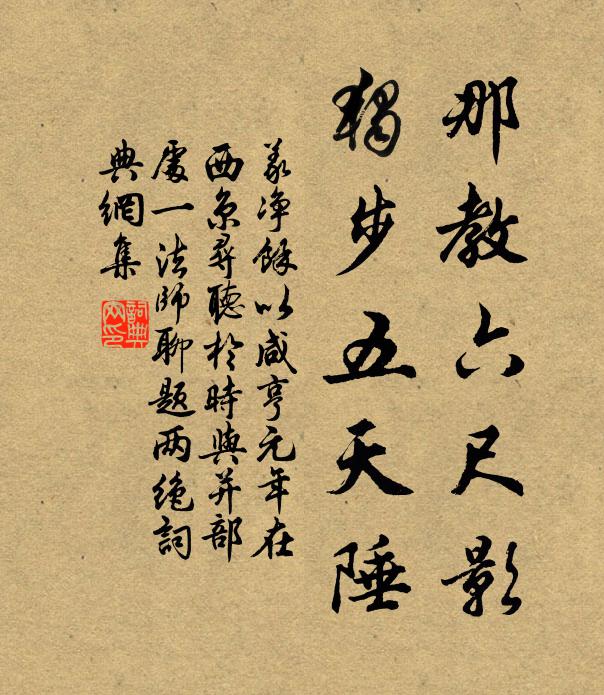 那教六尺影
獨步五天陲
義净餘以咸亨元年在
西京尋聽於時與并部
處一法師聊題两绝詞
典網集
詞典
网印